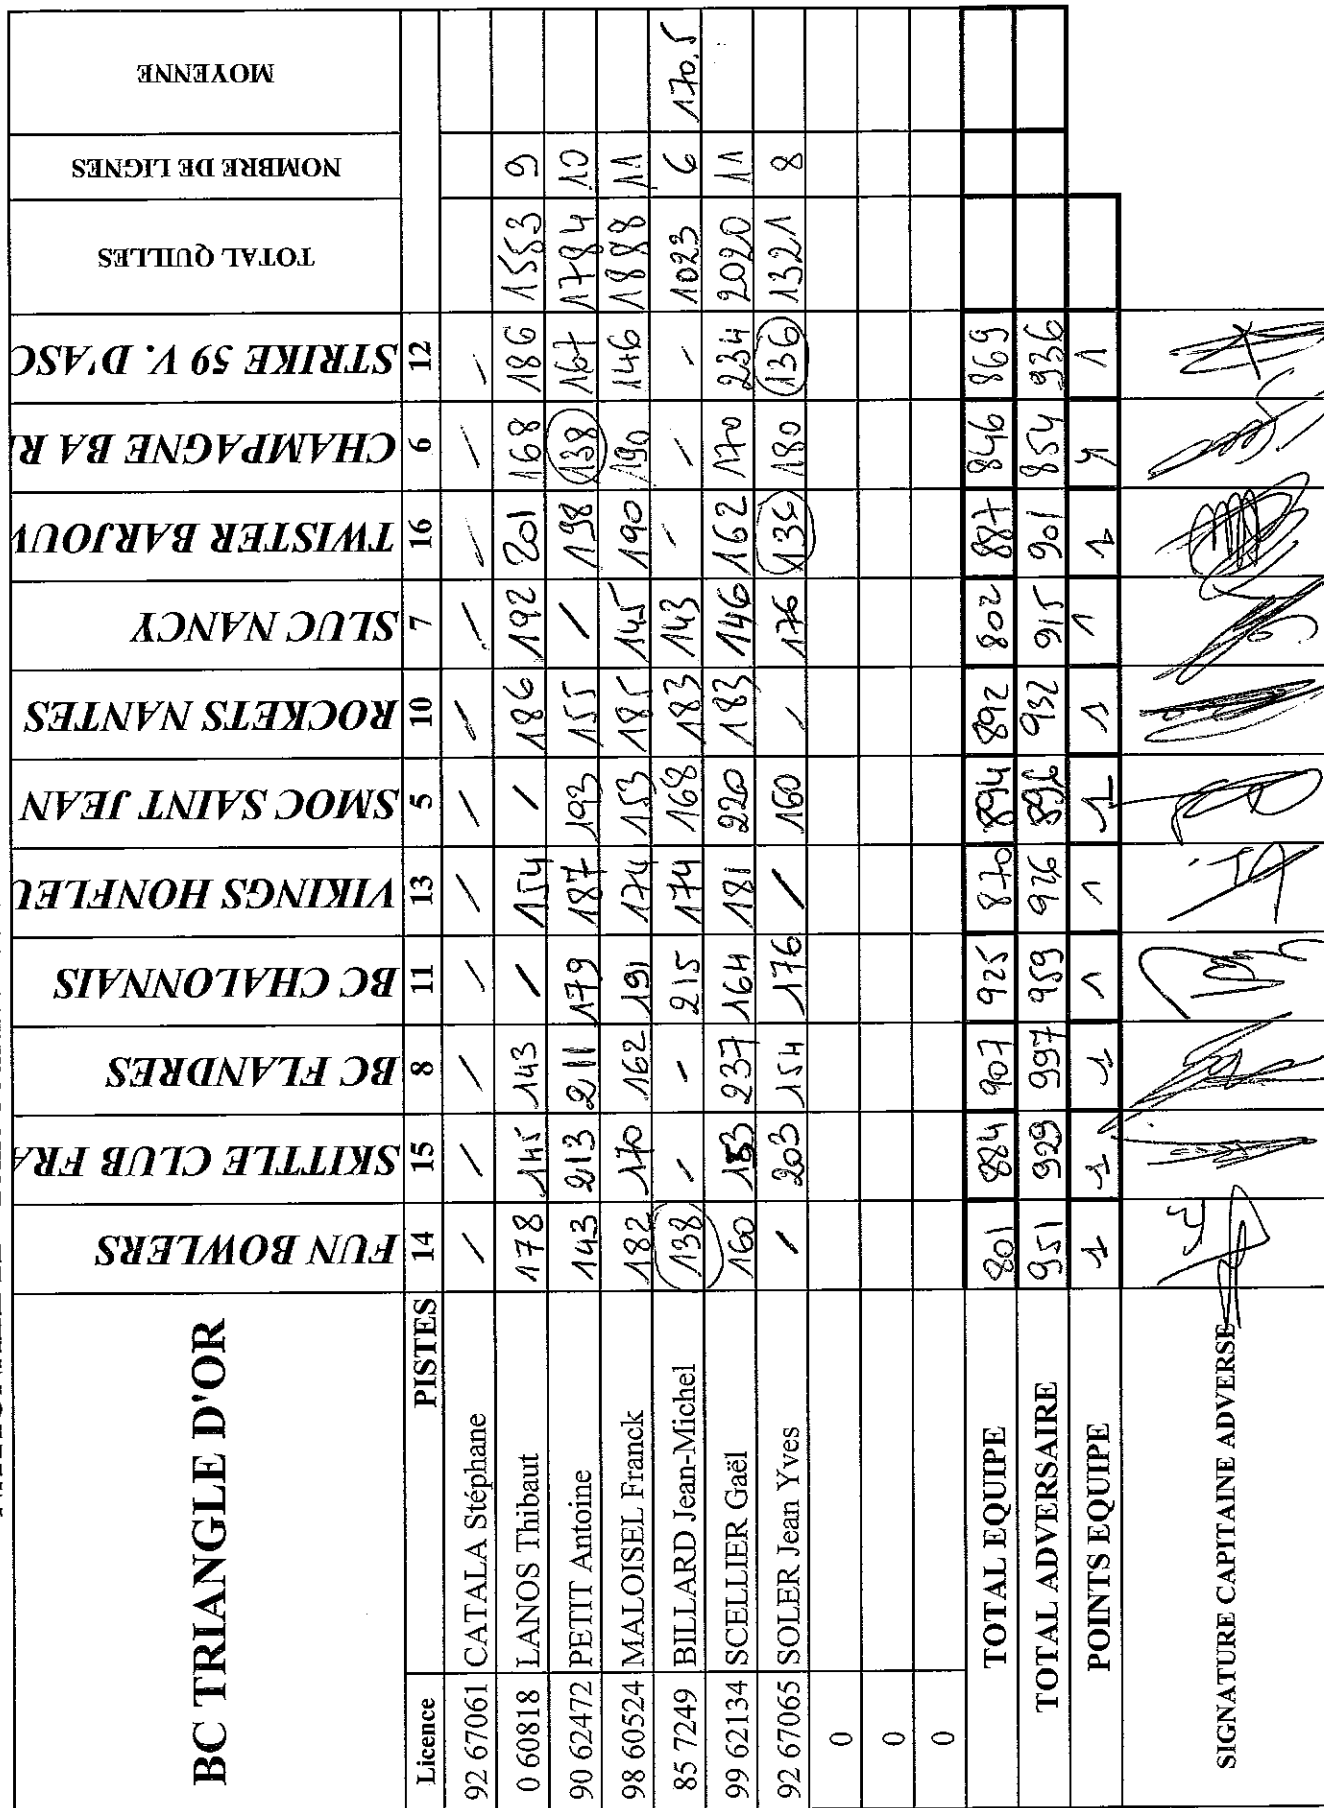 BC TRIANGLE D'OR FUN BOWLERS SKITTLE CLUB FRA BC FLANDRES BC CHALONNAIS VIKINGS HONFLEU SMOC SAINT JEAN ROCKETS NANTES SLUC NANCY TWISTER BARJOUV CHAMPAGNE BA RE STRIKE 59 V. D'ASC TOTAL QUILLES NOMBRE DE LIGNES MOYENNE
Licence PISTES 14 15 8 11 13 5 10 7 16 6 12
92 67061 CATALA Stéphane / / / / / / / / / / /
0 60818 LANOS Thibaut 178 145 143 / 154 / 186 192 201 168 186 1553 9
90 62472 PETIT Antoine 143 213 211 179 187 193 155 / 198 138 167 1784 10
98 60524 MALOISEL Franck 182 170 162 191 174 153 185 145 190 190 146 1888 11
85 7249 BILLARD Jean-Michel 138 / - 215 174 168 183 143 - / - 1023 6 170.5
99 62134 SCELLIER Gaël 160 153 237 164 181 220 183 146 162 170 234 2020 11
92 67065 SOLER Jean Yves / 203 154 176 / 160 / 176 136 180 136 1321 8
0
0
0
TOTAL EQUIPE 801 884 907 925 870 894 892 802 887 846 869
TOTAL ADVERSAIRE 951 929 997 959 926 896 932 915 901 854 936
POINTS EQUIPE 1 1 1 1 1 1 1 1 1 1 1
SIGNATURE CAPITAINE ADVERSE